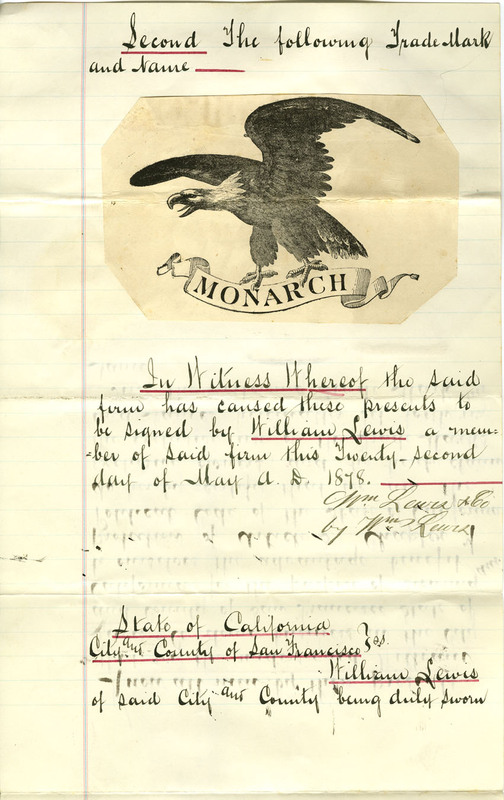 Second The following Trade Mark
and Name
MONARCH
In Witness Whereof the said
firm has caused these presents to
be signed by William Lewis a mem-
-ber of said firm this Twenty-second
day of May A. D. 1878.
Wm Lewis & Co
by Wm Lewis
State of California
City and County of San Francisco } ss.
William Lewis
of said City and County being duly sworn